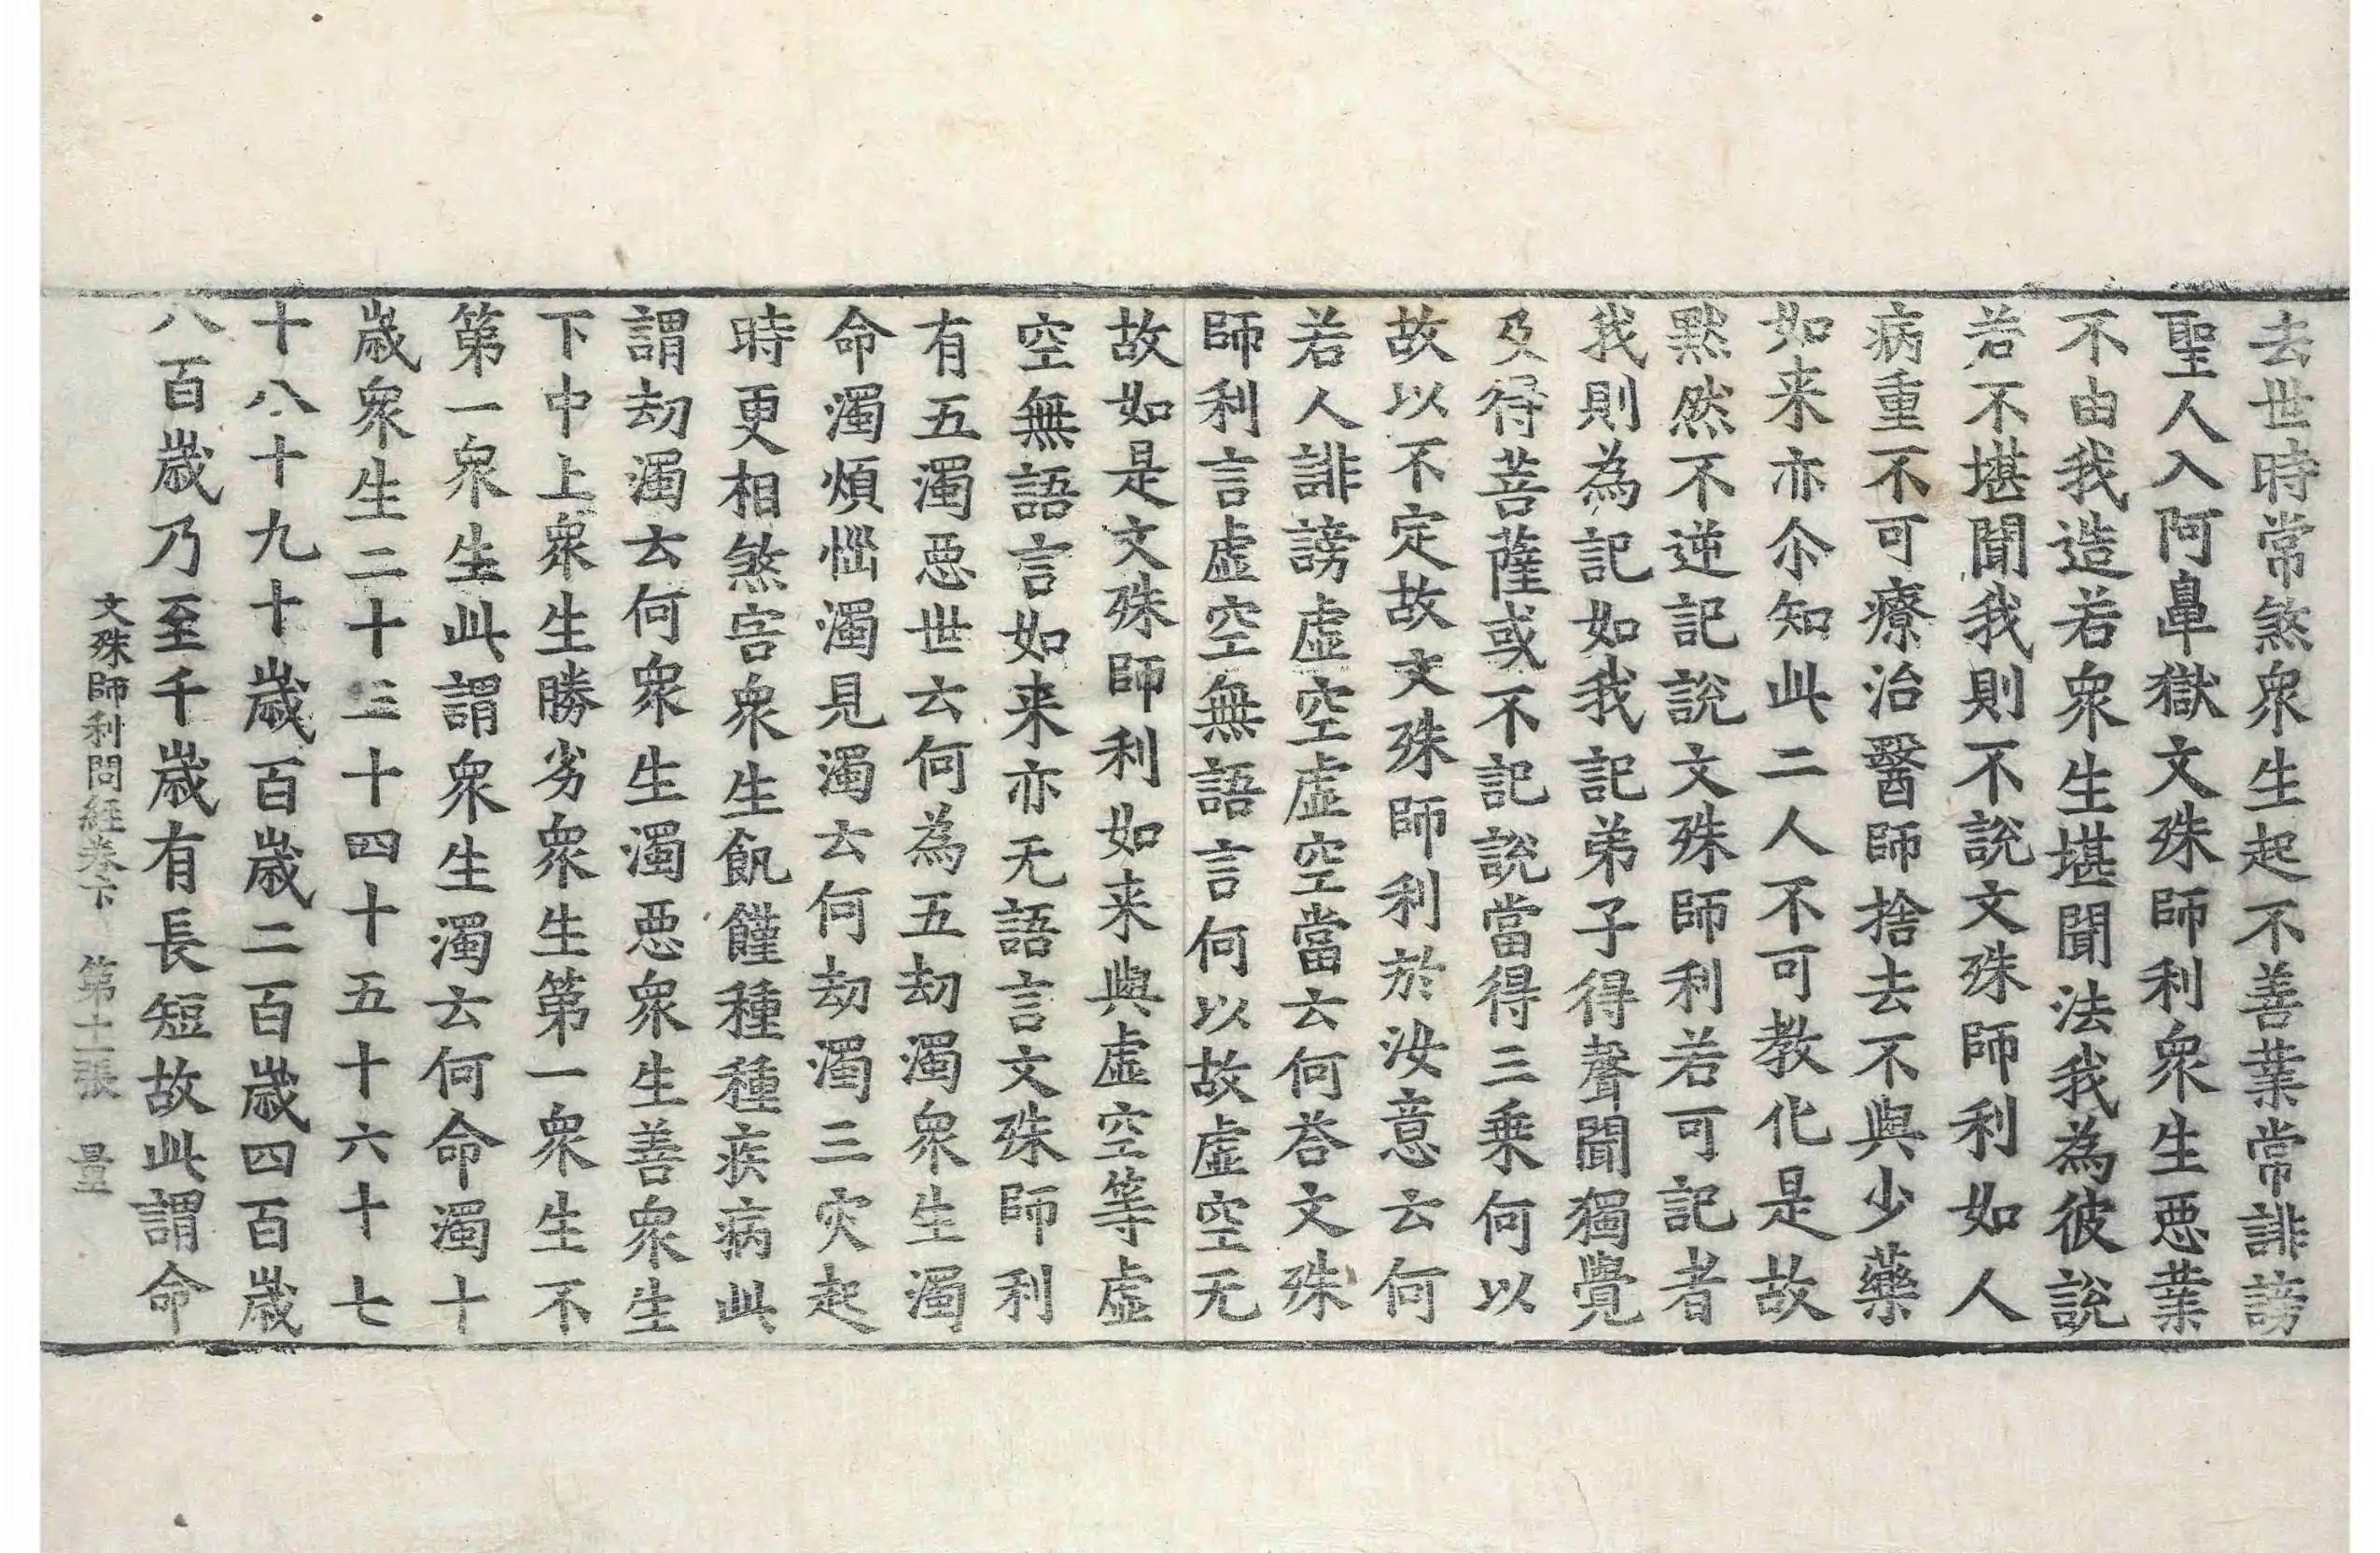 去世時常煞衆生起不善業常誹謗
聖人入阿鼻獄文殊師利衆生惡業
不由我造若衆生堪聞法我為彼說
若不堪聞我則不說文殊師利如人
病重不可療治醫師捨去不與少藥
如来亦尒知此二人不可教化是故
黙然不逆記說文殊師利若可記者
我則為記如我記弟子得聲聞獨覺
及得菩薩或不記說當得三乗何以
故以不定故文殊師利於汝意云何
若人誹謗虛空虛空當云何荅文殊
師利言虛空無語言何以故虛空无
故如是文殊師利如来與虛空等虛
空無語言如来亦无語言文殊師利
有五濁惡世云何為五劫濁衆生濁
命濁煩惱濁見濁云何劫濁三灾起
時更相煞害衆生飢饉種種疾病此
謂劫濁云何衆生濁惡衆生善衆生
下中上衆生勝劣衆生第一衆生不
第一衆生此謂衆生濁云何命濁十
歲衆生二十三十四十五十六十七
十八十九十歲百歲二百歲四百歲
八百歲乃至千歲有長短故此謂命
文殊師利問經卷下 第十二張 量